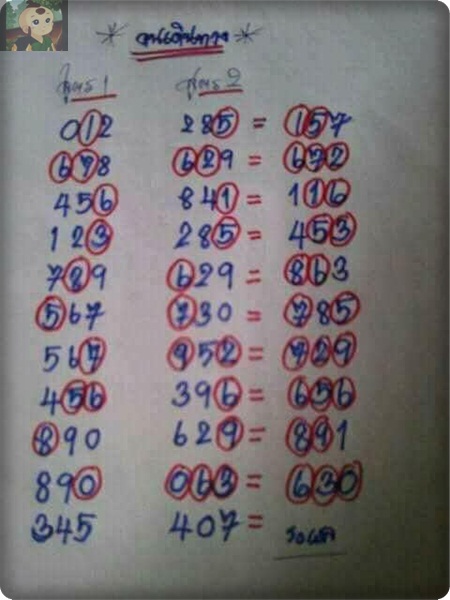 * คนเดินทาง *
สูตร 1 สูตร 2
012 285 = 157
678 629 = 672
456 841 = 116
123 285 = 453
789 629 = 863
567 730 = 785
567 952 = 729
456 396 = 656
890 629 = 891
890 063 = 630
345 407 =